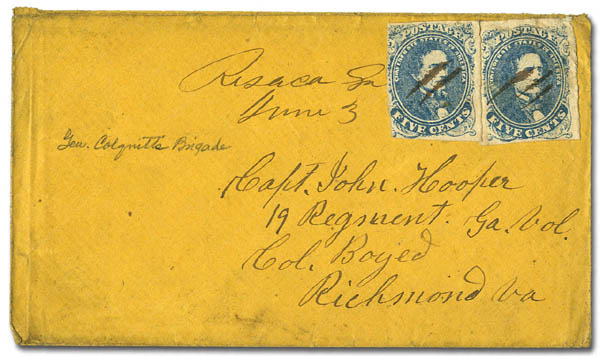 POSTAGE
CONFEDERATE STATES OF AMERICA
FIVE CENTS
POSTAGE
CONFEDERATE STATES OF AMERICA
FIVE CENTS
Risaca Ga
June 3
Gen. Colquitt's Brigade
Capt. John. Hooper
19 Regment. Ga. Vol.
Col. Boyed
Richmond Va